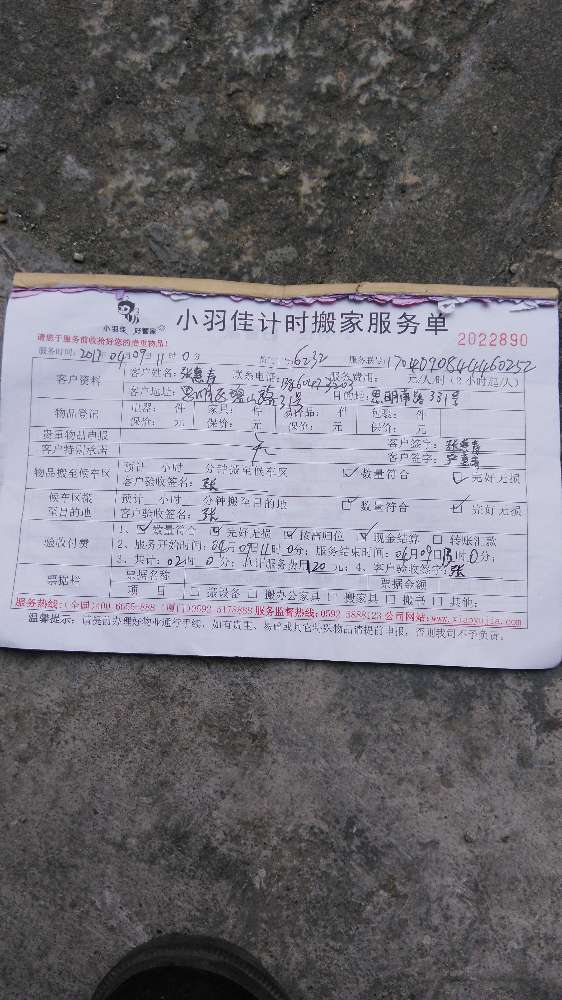 小羽佳 好管家
小羽佳计时搬家服务单
2022890
请您于服务前收拾好您的贵重物品!
服务时间: 2017 04月09日11时0分 6232 服务联号: 
客户资料 客户姓名: 联系电话: 服务费用: 元/人/时(2小时起/人)
客户地址: 目的地: 思明南路331号
物品登记 电器: 件 家具: 件 易碎品: 件 包裹: 件
保价: 元 保价: 元 保价: 元 保价: 元
贵重物品申报 客户签字:
客户特别承诺 无 客户签字:
物品搬至候车区 预计 小时 分钟搬至候车区 数量符合 完好无损
客户验收签名: 张
候车区搬至目的地 预计 小时 分钟搬至目的地 数量符合 完好无损
客户验收签名: 张
验收付费 1、数量符合 完好无损 按指归位 现金结算 转账汇款
2、服务开始时间: 04月09日11时0分; 服务结束时间: 04月09日13时0分;
3、共计: 02时0分; 共计服务费用120元; 4、客户验收签字: 张
票据栏 票据名称 票据金额
项目 搬设备 搬办公家具 搬家具 搬书 其他:
服务热线:(全国)400-6655-888 (厦门)0592-5178888 服务监督热线:0592-5888123 公司网站:www.xiaoyujia.com
温馨提示: 请提前办理好物业通行手续, 如有贵重、易碎或其它特殊物品请提前申报, 否则我司不予负责。